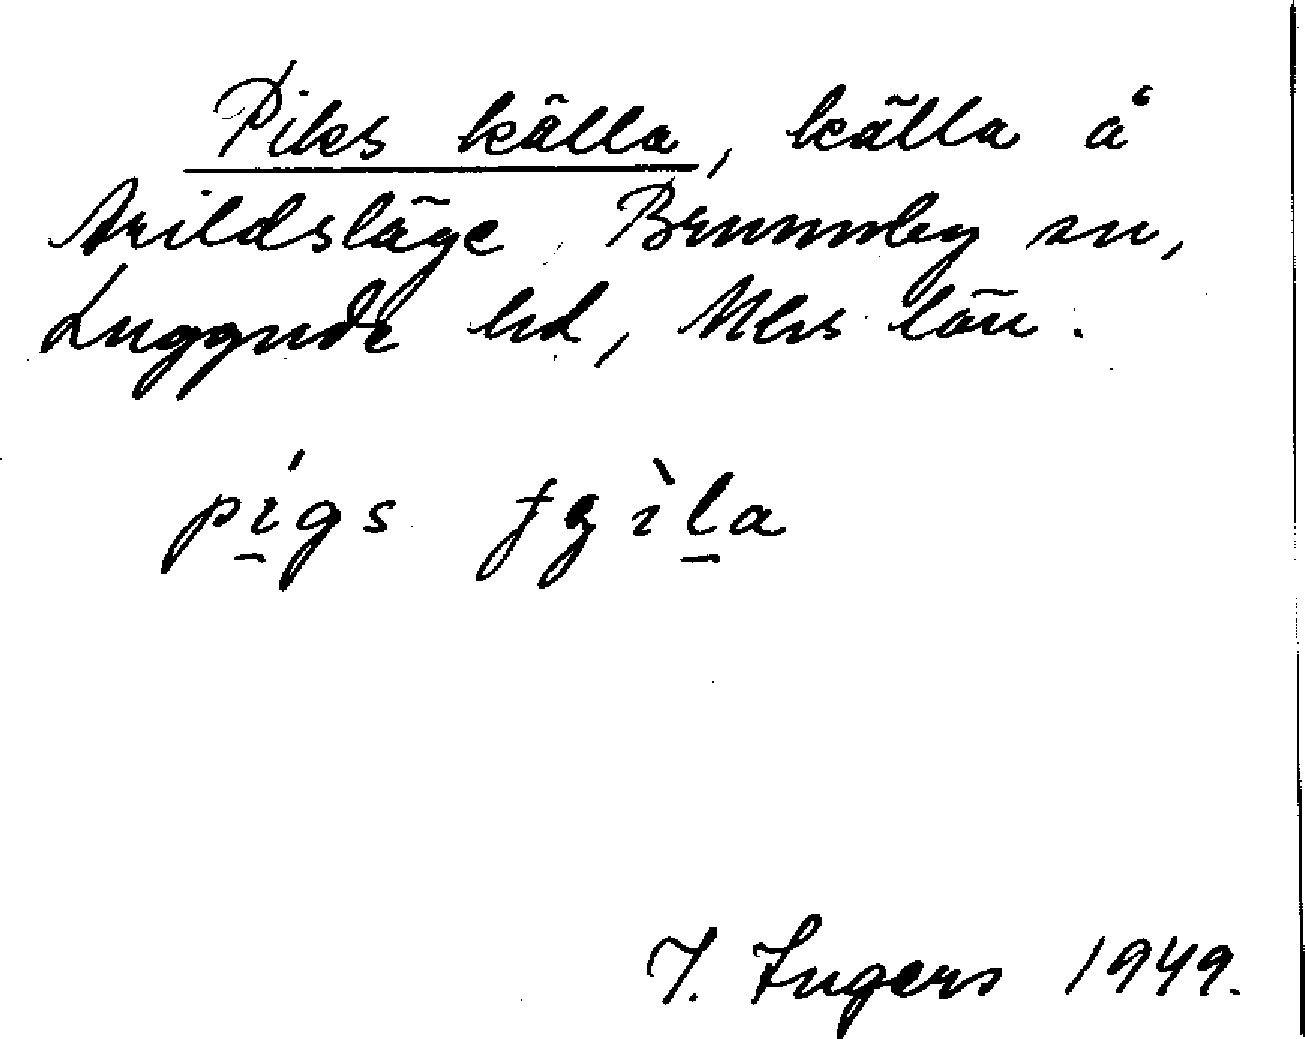 Piks källa, källa å
Arildsläge, Brunnby sn,
Luggude hd, Mlhs län.
pígs ɟʒìla
I. Ingers 1949.